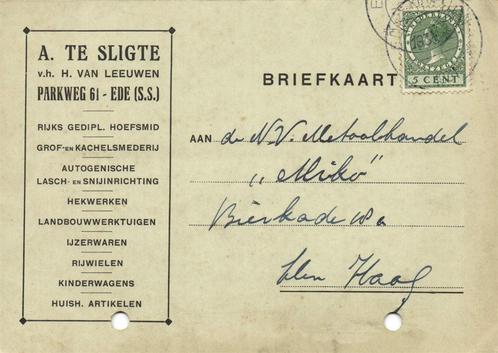 A. TE SLIGTE
v.h. H. VAN LEEUWEN
PARKWEG 61 - EDE (S.S.)
RIJKS GEDIPL. HOEFSMID
GROF- EN KACHELSMEDERIJ
AUTOGENISCHE
LASCH- EN SNIJINRICHTING
HEKWERKEN
LANDBOUWWERKTUIGEN
IJZERWAREN
RIJWIELEN
KINDERWAGENS
HUISH. ARTIKELEN
BRIEFKAART
5 CENT
AAN de N.V. Metaalhandel
"Miko"
Bierkade 18a
Den Haag